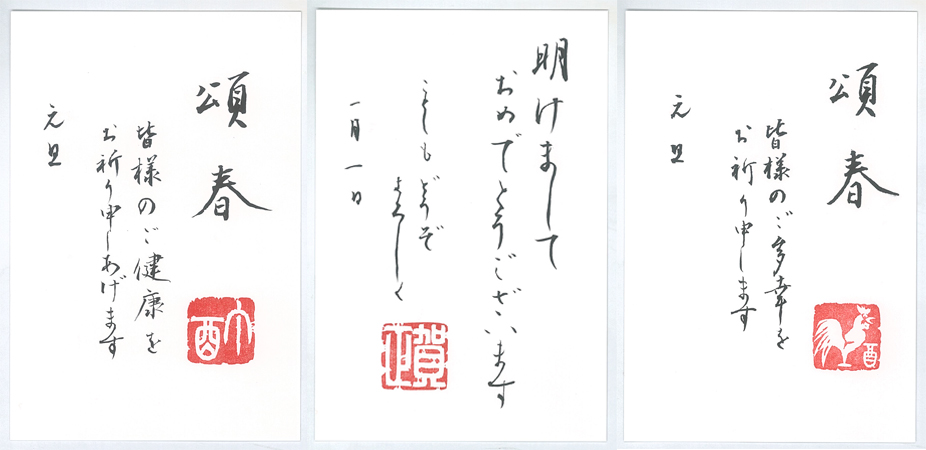 頌春
皆様のご健康を
お祈り申しあげます
元旦
酉
明けまして
おめでとうございます
ことしも どうぞ
よろしく
一月一日
賀正
頌春
皆様のご多幸を
お祈り申します
元旦
酉